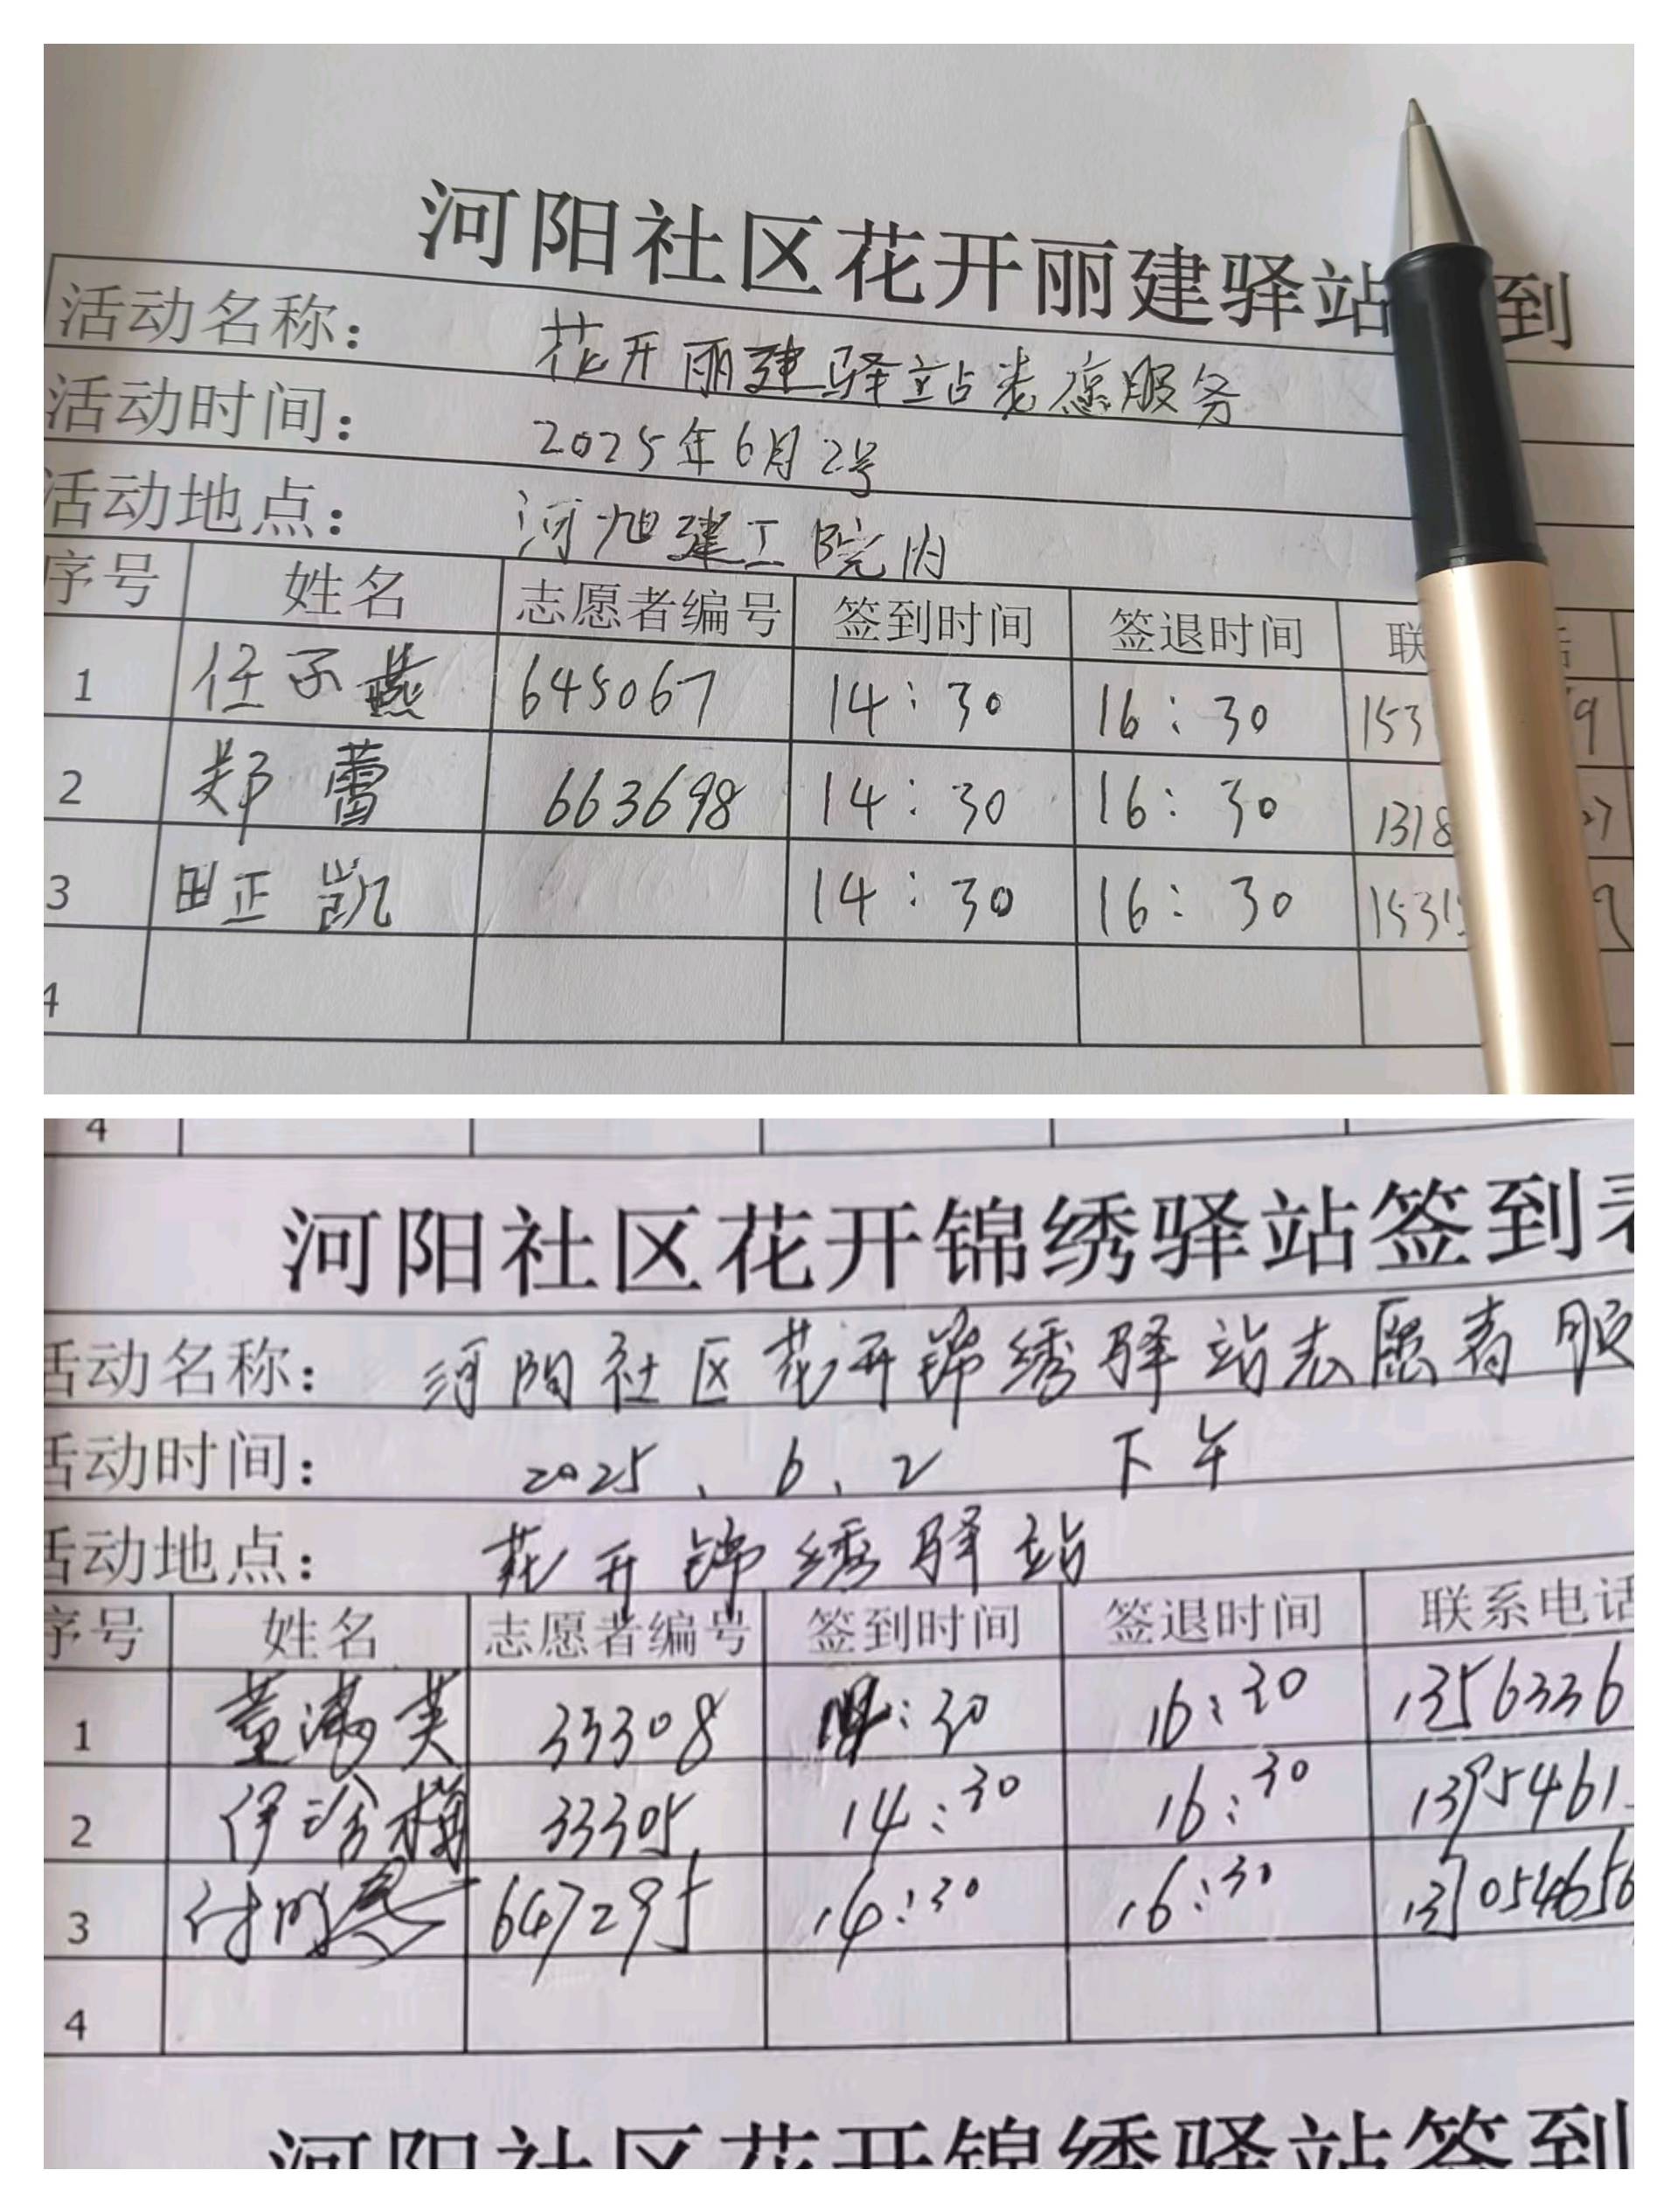 河阳社区花开丽建驿站 到
活动名称： 花开丽建驿站志愿服务
活动时间： 2025年6月2号
活动地点： 河旭建工院内
序号 姓名 志愿者编号 签到时间 签退时间 联
1 任子燕 645067 14：30 16：30 153 9
2 郑蕾 663698 14：30 16：30 1318 27
3 田正凯 14：30 16：30 1531 9
4
4
河阳社区花开锦绣驿站签到表
活动名称： 河阳社区花开锦绣驿站志愿者服
活动时间： 2025、6、2 下午
活动地点： 花开锦绣驿站
序号 姓名 志愿者编号 签到时间 签退时间 联系电话
1 董满英 33308 14：30 16：30 1356336
2 伊洽梅 33305 14：30 16：30 1395461
3 付 647295 14：30 16：30 1305465
4
河阳社区花开锦绣驿站签到